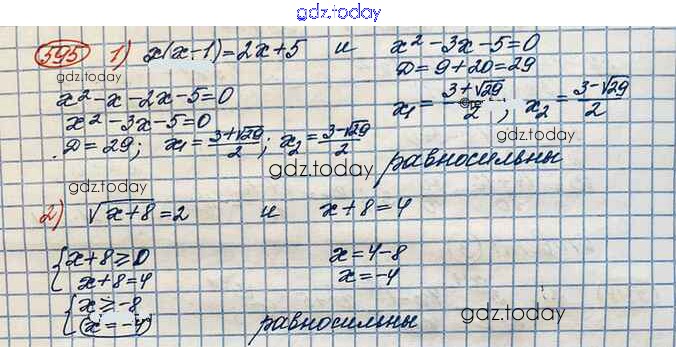 gdz.today
595 1) x(x-1)=2x+5 и x²-3x-5=0
gdz.today
x²-x-2x-5=0 D=9+20=29
x²-3x-5=0 x₁=(3+√29)/2; x₂=(3-√29)/2
D=29; x₁=(3+√29)/2; x₂=(3-√29)/2
gdz.today равносильны
2) √(x+8)=2 и x+8=4
{x+8≥0 x=4-8
x+8=4 x=-4
{x≥-8
(x=-4) равносильны
gdz.today